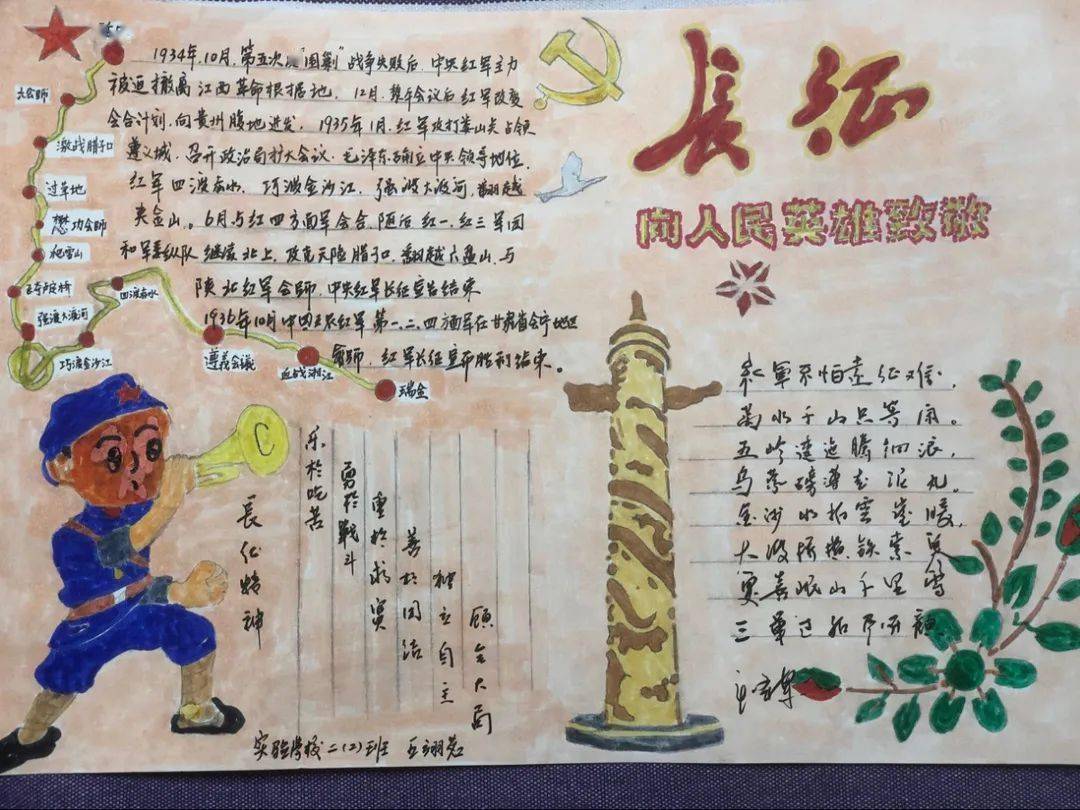 1934年,10月,第五次反"围剿"战争失败后,中央红军主力
被迫撤离江西革命根据地,12月,黎平会议后红军改变
会合计划,向贵州腹地进发,1935年1月,红军攻打娄山关占领
遵义城,召开政治局扩大会议,毛泽东确立中央领导地位,
红军四渡赤水,巧渡金沙江,强渡大渡河,翻越
夹金山。6月与红四方面军会合,随后红一、红三军团
和军委纵队继续北上,攻克天险腊子口,翻越六盘山,与
陕北红军会师,中央红军长征宣告结束
1936年10月中国工农红军第一、二、四方面军在甘肃省会宁地区
会师,红军长征宣布胜利结束。
大会师
激战腊子口
过草地
懋功会师
爬雪山
飞夺泸定桥
强渡大渡河
巧渡金沙江
四渡赤水
遵義会議
血战湘江
瑞金
長征
向人民英雄致敬
紅軍不怕遠征难,
萬水千山只等闲。
五岭逶迤騰细浪,
乌蒙磅礴走泥丸。
金沙水拍雲崖暖,
大渡桥横鉄索寒
更喜岷山千里雪
三軍过後尽开颜
長征精神
乐於吃苦
勇於戰斗
重於求实
善於团结
独立自主
顾全大局
实验学校二(2)班